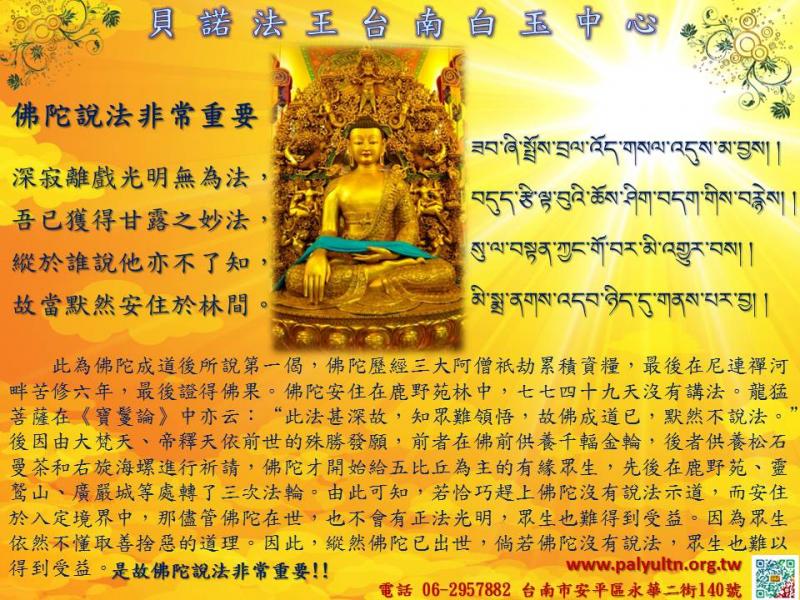 貝諾法王台南白玉中心
佛陀說法非常重要
深寂離戲光明無為法，
吾已獲得甘露之妙法，
縱於誰說他亦不了知，
故當默然安住於林間。
ཟབ་ཞི་སྤྲོས་བྲལ་འོད་གསལ་འདུས་མ་བྱས། །
བདུད་རྩི་ལྟ་བུའི་ཆོས་ཤིག་བདག་གིས་བརྙེས། །
སུ་ལ་བསྟན་ཀྱང་གོ་བར་མི་འགྱུར་བས། །
མི་སྨྲ་ནགས་འདབ་ཉིད་དུ་གནས་པར་བྱ། །
此為佛陀成道後所說第一偈，佛陀歷經三大阿僧祇劫累積資糧，最後在尼連禪河
畔苦修六年，最後證得佛果。佛陀安住在鹿野苑林中，七七四十九天沒有講法。龍猛
菩薩在《寶鬘論》中亦云：“此法甚深故，知眾難領悟，故佛成道已，默然不說法。”
後因由大梵天、帝釋天依前世的殊勝發願，前者在佛前供養千輻金輪，後者供養松石
曼茶和右旋海螺進行祈請，佛陀才開始給五比丘為主的有緣眾生，先後在鹿野苑、靈
鷲山、廣嚴城等處轉了三次法輪。由此可知，若恰巧趕上佛陀沒有說法示道，而安住
於入定境界中，那儘管佛陀在世，也不會有正法光明，眾生也難得到受益。因為眾生
依然不懂取善捨惡的道理。因此，縱然佛陀已出世，倘若佛陀沒有說法，眾生也難以
得到受益。是故佛陀說法非常重要!!
www.palyultn.org.tw
電話 06-2957882 台南市安平區永華二街140號